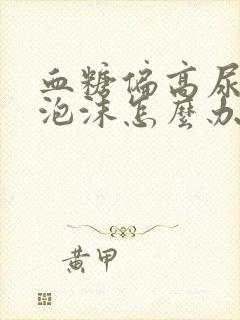 血糖偏高尿
泡沫怎麼办
黄甲